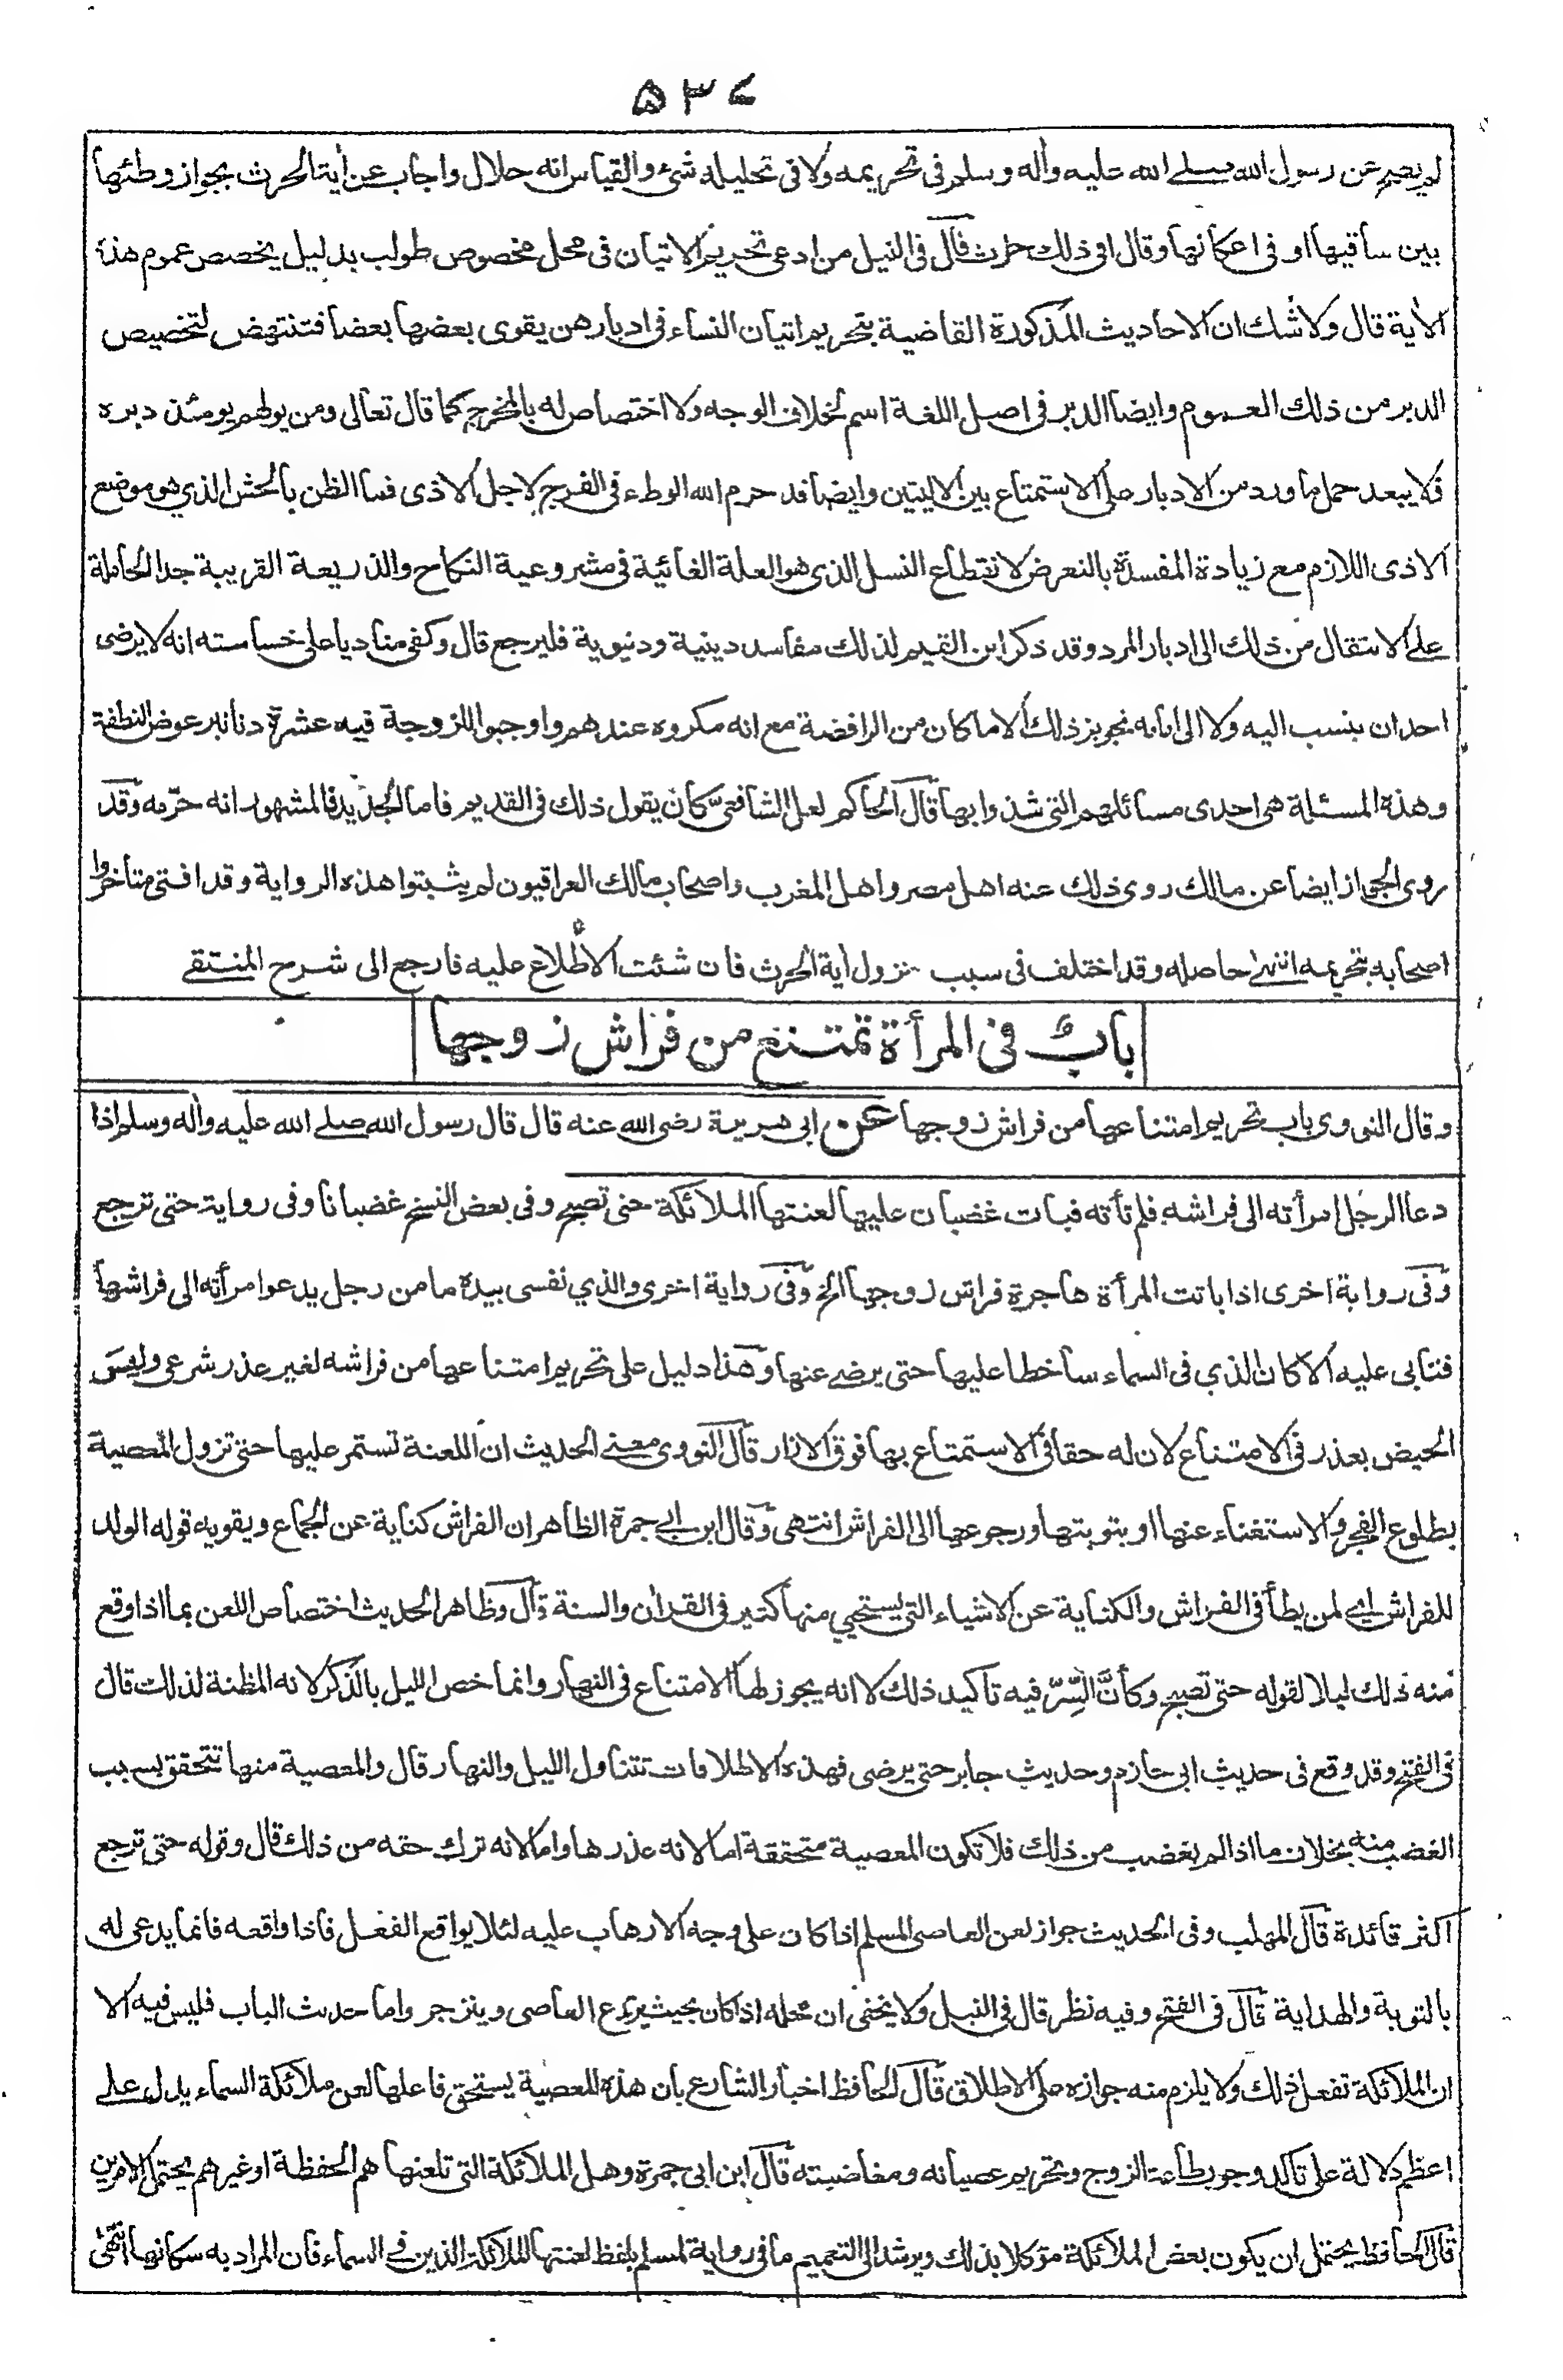 ٥٣٧
لم يصح عن رسول الله صلے الله عليه وأله وسلم فى تحريمه ولا فى تحليله شئ والقياس انه حلال واجاب عن أية الحرث بجواز وطئها
بين ساقيها او فى اعكانها وقال افى ذلك حرث قال فى النيل من ادعى تحريم الاتيان فى محل مخصوص طولب بدليل يخصص عموم هذه
الأية قال ولا شك ان الاحاديث المذكورة القاضية بتحريم اتيان النساء فى ادبارهن يقوى بعضها بعضا فتنتهض لتخصيص
الدبر من ذلك العموم وايضا الدبر فى اصل اللغة اسم لخلاف الوجه ولا اختصاص له بالمخرج كما قال تعالى ومن يولهم يومئذ دبره
فلا يبعد حمل ما ورد من الادبار على الاستمتاع بين الاليتين وايضا قد حرم الله الوطء فى الفرج لاجل الاذى فما الظن بالحش الذي هو موضع
الاذى اللازم مع زيادة المفسدة بالتعرض لانقطاع النسل الذي هو العلة الغائية فى مشروعية النكاح والذريعة القريبة جدا الحاملة
على الانتقال من ذلك الى ادبار المرد وقد ذكر ابن القيم لذلك مفاسد دينية ودنيوية فليرجع قال وكفى مناديا على خساسته انه لا يرضى
احد ان ينسب اليه ولا الى امامه تجويز ذلك الا ما كان من الرافضة مع انه مكروه عندهم واوجبوا للزوجة فيه عشرة دنانير عوض النطفة
وهذه المسئلة هى احدى مسائلهم التى شذوا بها قال الحاكم لعل الشافعى كان يقول ذلك فى القديم فاما الجديد فالمشهور انه حرّمه وقد
روى الجواز ايضا عن مالك روى ذلك عنه اهل مصر واهل المغرب واصحاب مالك العراقيون لم يثبتوا هذه الرواية وقد افتى متأخروا
اصحابه بتحريمه انتهى حاصله وقد اختلف فى سبب نزول أية الحرث فان شئت الاطلاع عليه فارجع الى شرح المنتقے
باب فى المرأة تمتنع من فراش زوجها
وقال النووى باب تحريم امتناعها من فراش زوجها عن ابى هريرة رضى الله عنه قال قال رسول الله صلے الله عليه وأله وسلم اذا
دعا الرجل امرأته الى فراشه فلم تأته فبات غضبان عليها لعنتها الملائكة حتى تصبح وفى بعض النسخ غضبانا وفى رواية حتى ترجع
وفى رواية اخرى اذا باتت المرأة هاجرة فراش زوجها الخ وفى رواية اخرى والذي نفسى بيده ما من رجل يدعو امرأته الى فراشها
فتابى عليه الا كان الذي فى السماء ساخطا عليها حتى يرضے عنها وهذا دليل على تحريم امتناعها من فراشه لغير عذر شرعى وليس
الحيض بعذر فى الامتناع لان له حقا فى الاستمتاع بها فوق الازار قال النووى معنے الحديث ان اللعنة تستمر عليها حتى تزول المعصية
بطلوع الفجر والاستغناء عنها او بتوبتها ورجوعها الى الفراش انتهى وقال ابن ابے جمرة الظاهر ان الفراش كناية عن الجماع ويقويه قوله الولد
للفراش اے لمن يطأ فى الفراش والكناية عن الاشياء التى يستحيي منها كثير فى القرأن والسنة قال وظاهر الحديث اختصاص اللعن بما اذا وقع
منه ذلك ليلا لقوله حتى تصبح وكأنّ السّرّ فيه تاكيد ذلك لا انه يجوز لها الامتناع فى النهار وانما خص الليل بالذكر لانه المظنة لذلك قال
فى الفتح وقد وقع فى حديث ابى حازم وحديث جابر حتى يرضى فهذه الاطلاقات تتناول الليل والنهار قال والمعصية منها تتحقق بسبب
الغضب منه بخلاف ما اذا لم يغضب من ذلك فلا تكون المعصية متحققة اما لانه عذرها واما لانه ترك حقه من ذلك قال وقوله حتى ترجع
اكثر فائدة قال المهلب وفى الحديث جواز لعن العاصى المسلم اذا كان على وجه الارهاب عليه لئلا يواقع الفعل فاذا واقعه فانما يدعى له
بالتوبة والهداية قال فى الفتح وفيه نظر قال فى النيل ولا يخفى ان محله اذا كان بحيث يرتدع العاصى وينزجر واما حديث الباب فليس فيه الا
ان الملائكة تفعل ذلك ولا يلزم منه جوازه على الاطلاق قال الحافظ اخبار الشارع بان هذه المعصية يستحق فاعلها لعن ملائكة السماء يدل على
اعظم دلالة على تأكد وجوب طاعة الزوج وتحريم عصيانه ومغاضبته قال ابن ابى جمرة وهل الملائكة التى تلعنها هم الحفظة او غيرهم يحتمل الامرين
قال الحافظ يحتمل ان يكون بعض الملائكة موكلا بذلك ويرشد الى التعميم ما فى رواية لمسلم بلفظ لعنتها الملائكة الذين فى السماء فان المراد به سكانها انتهى